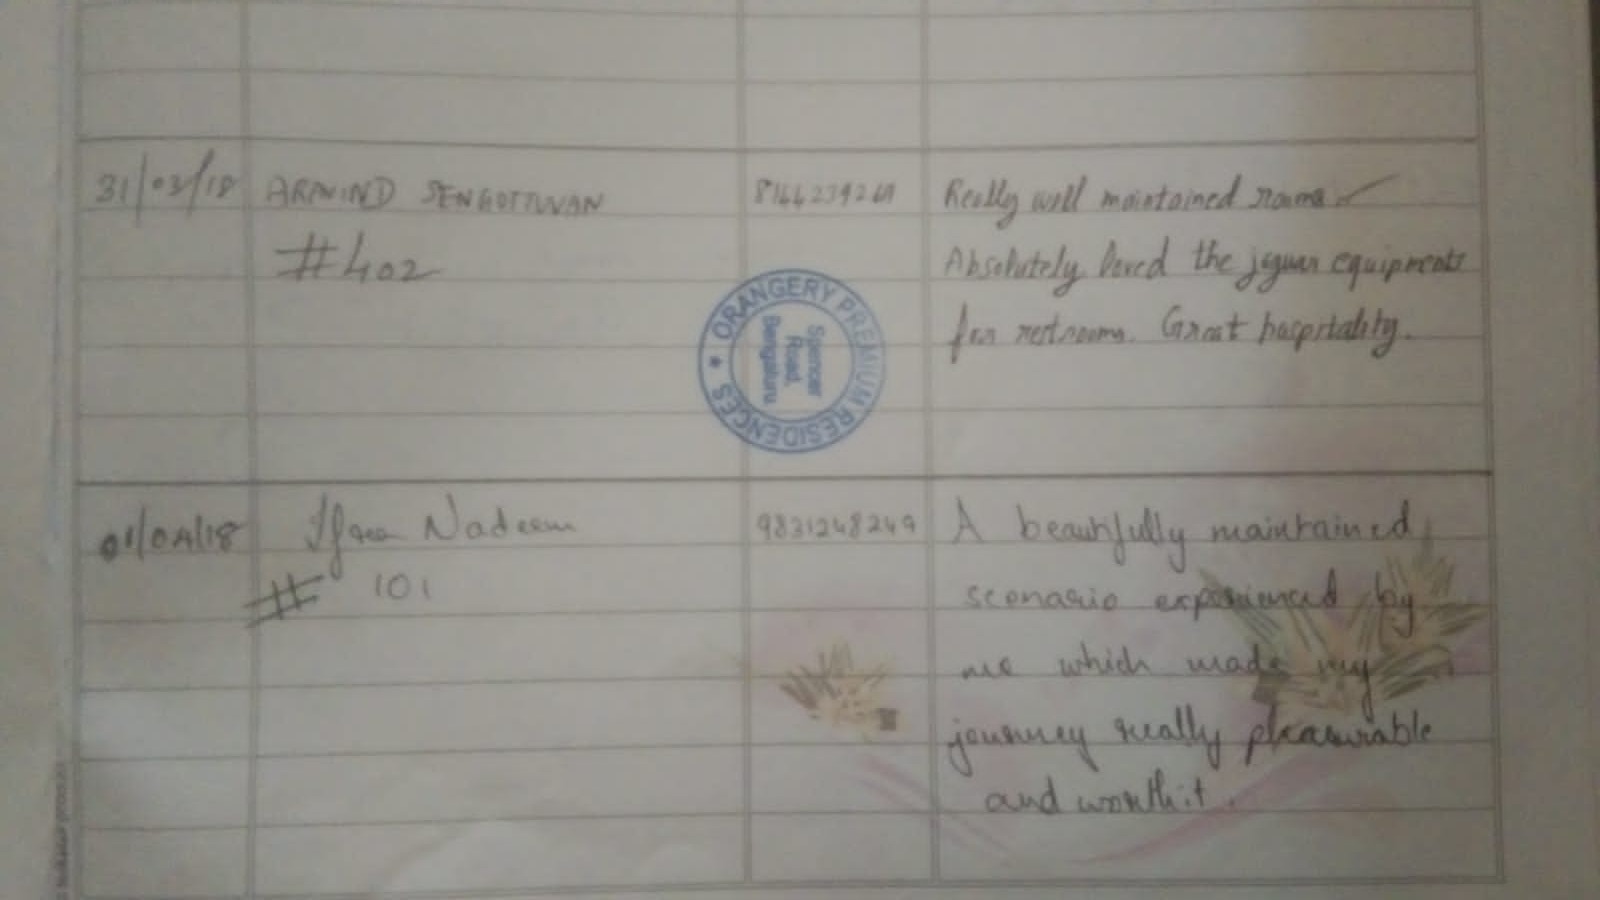 31/03/18 ARAVIND SENGOTTUVAN Really well maintained rooms
#402 Absolutely loved the jaguar equipments
for restrooms. Great hospitality.
ORANGERY PREMIUM RESIDENCES
Spencer
Road,
Bengaluru
01/04/18 Nadeem 9831248249 A beautifully maintained
# 101 scenario experienced by
me which made my
journey really pleasurable
and worth it.